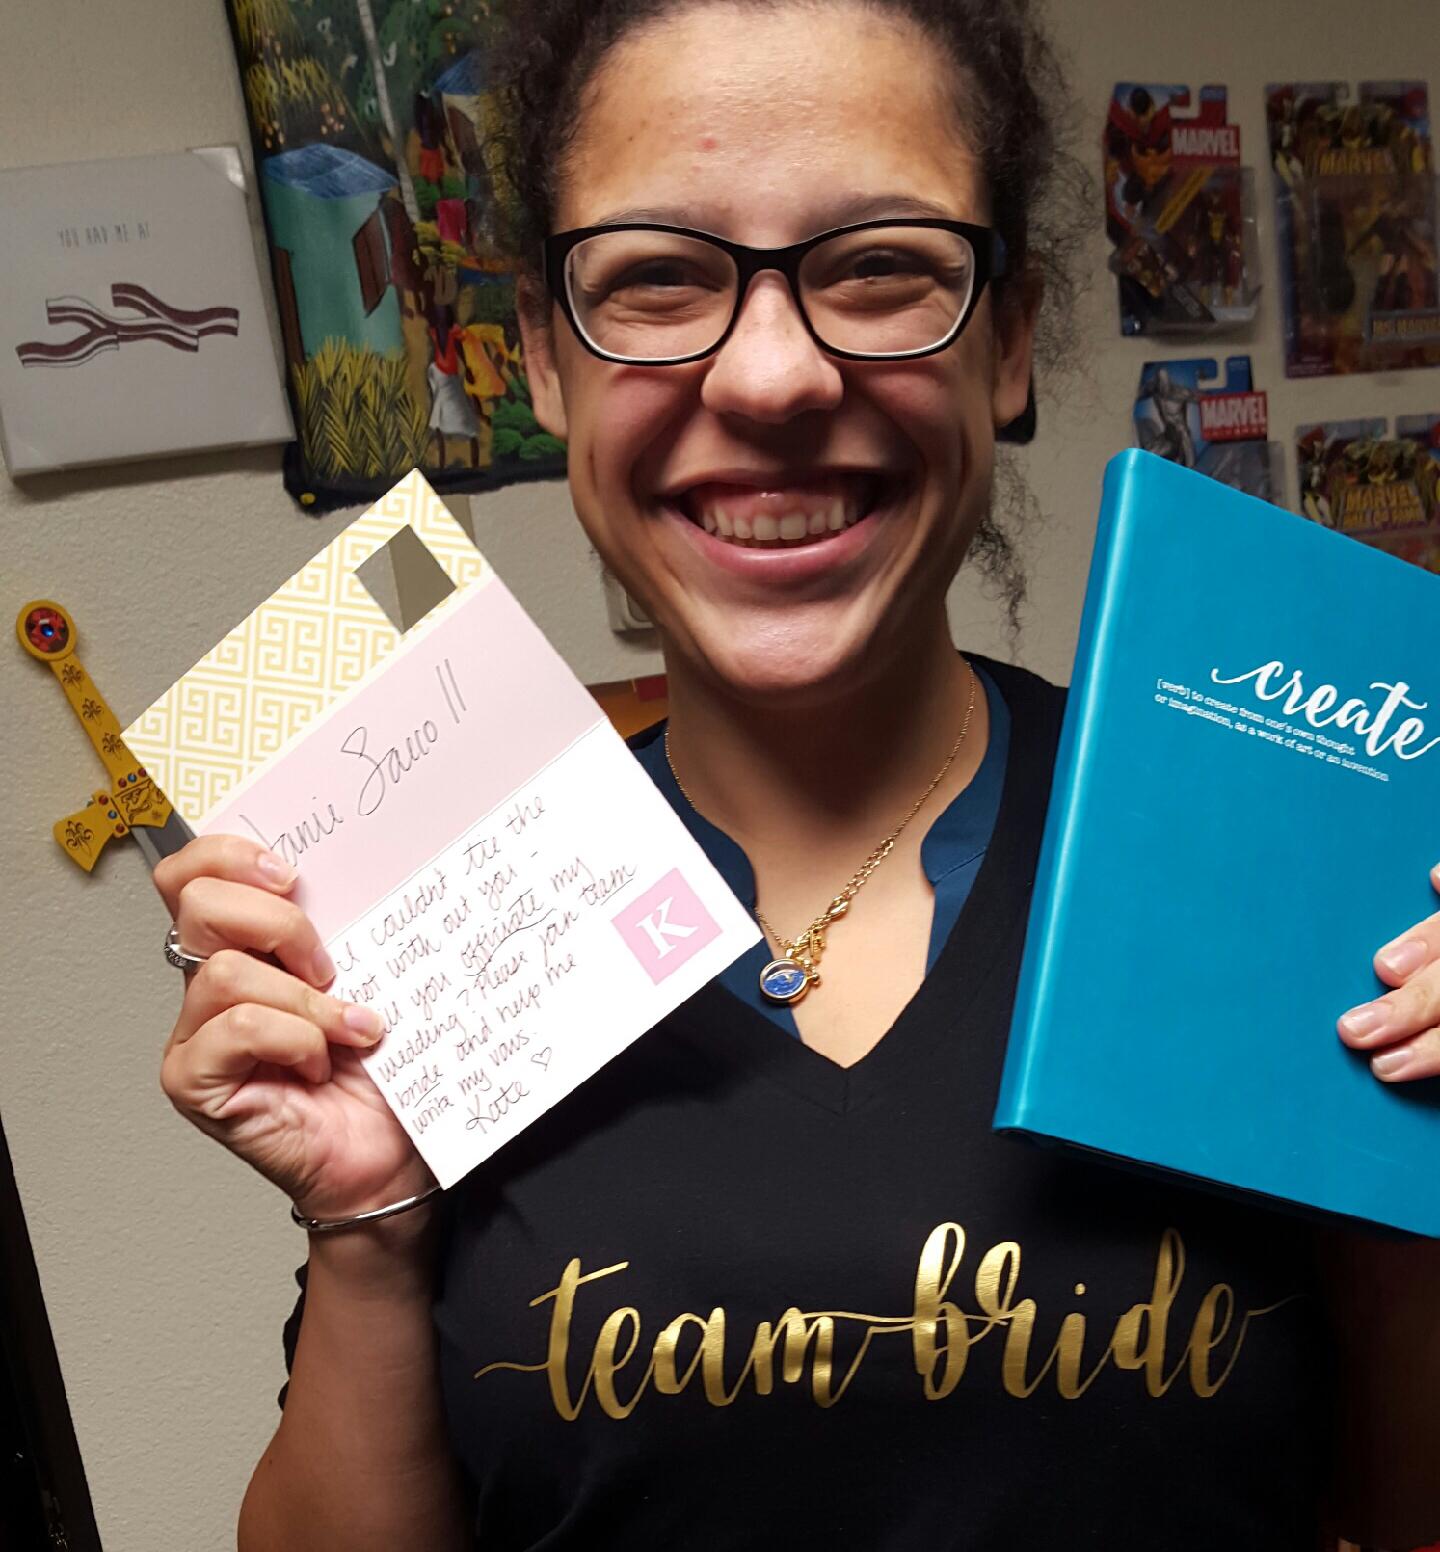 YOU HAD ME AT
MARVEL
MARVEL
MS. MARVEL
MARVEL
MARVEL
HALL OF FAME
I couldn't tie the
knot with out you -
will you officiate my
wedding? Please join team
bride and help me
write my vows.
Kate ♡
K
create
[verb] to create from one's own thought
or imagination, as a work of art or an invention
team bride